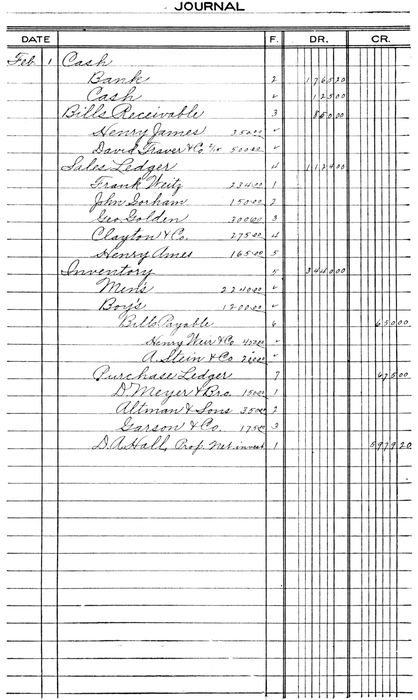 JOURNAL
DATE F. DR. CR.
Feb 1 Cash
Bank 2 1765 20
Cash ✓ 125 00
Bills Receivable 3 850 00
Henry James 350 00 ✓
David Traver & Co. 500 00 ✓
Sales Ledger 4 1124 00
Frank Weitz 234 00 1
John Gorham 150 00 2
Geo. Golden 300 00 3
Clayton & Co. 275 00 4
Henry Ames 165 00 5
Inventory 5 3440 00
Men's 2240 00 ✓
Boy's 1200 00 ✓
Bills Payable 6 650 00
Henry Weir & Co ✓
A. Stein & Co ✓
Purchase Ledger 7 675 00
D. Meyer & Bro. 150 00 1
Altman & Sons 350 00 2
Garson & Co. 175 00 3
D. A. Hall, Prop. Net invest 1 5979 20